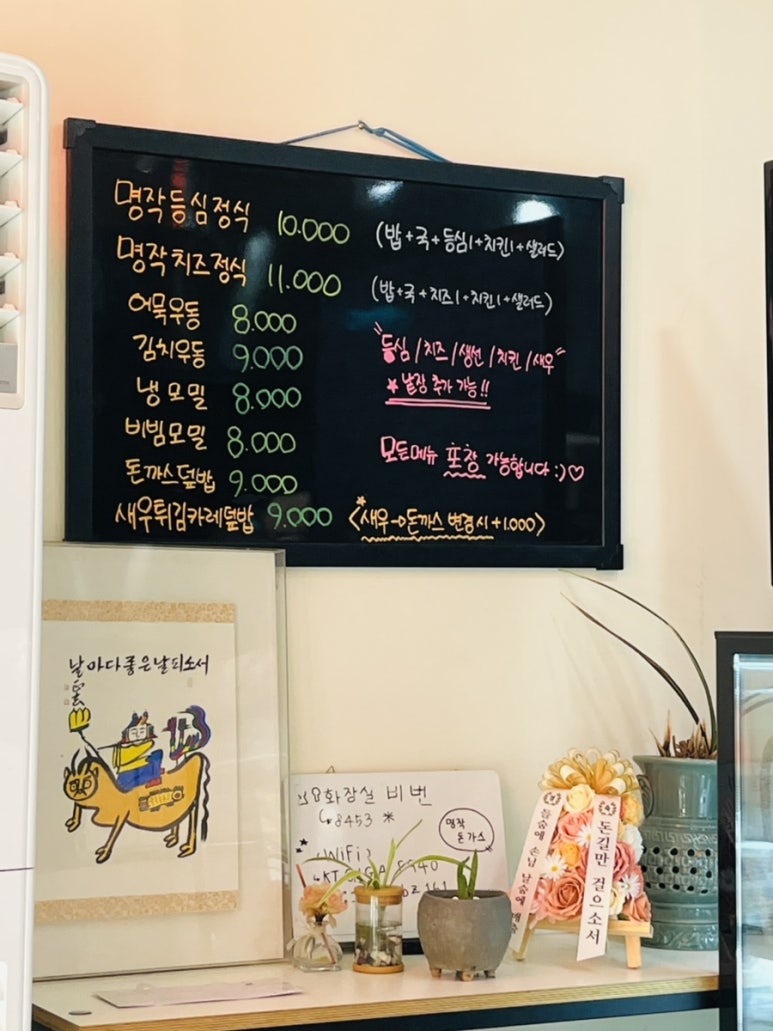 명작등심정식 10.000 (밥+국+등심1+치킨1+샐러드)
명작치즈정식 11.000 (밥+국+치즈1+치킨1+샐러드)
어묵우동 8.000
김치우동 9.000
냉모밀 8.000
비빔모밀 8.000
돈까스덮밥 9.000
새우튀김카레덮밥 9.000
"등심/치즈/생선/치킨/새우"
★ 낱장 추가 가능!!
모든메뉴 포장 가능합니다 :)♡
<새우→돈까스 변경시 +1.000>
날마다좋은날되소서
화장실 비번
↳8453 *
명작
돈까스
WiFi
돈길만 걸으소서
들숨에 손님 날숨에